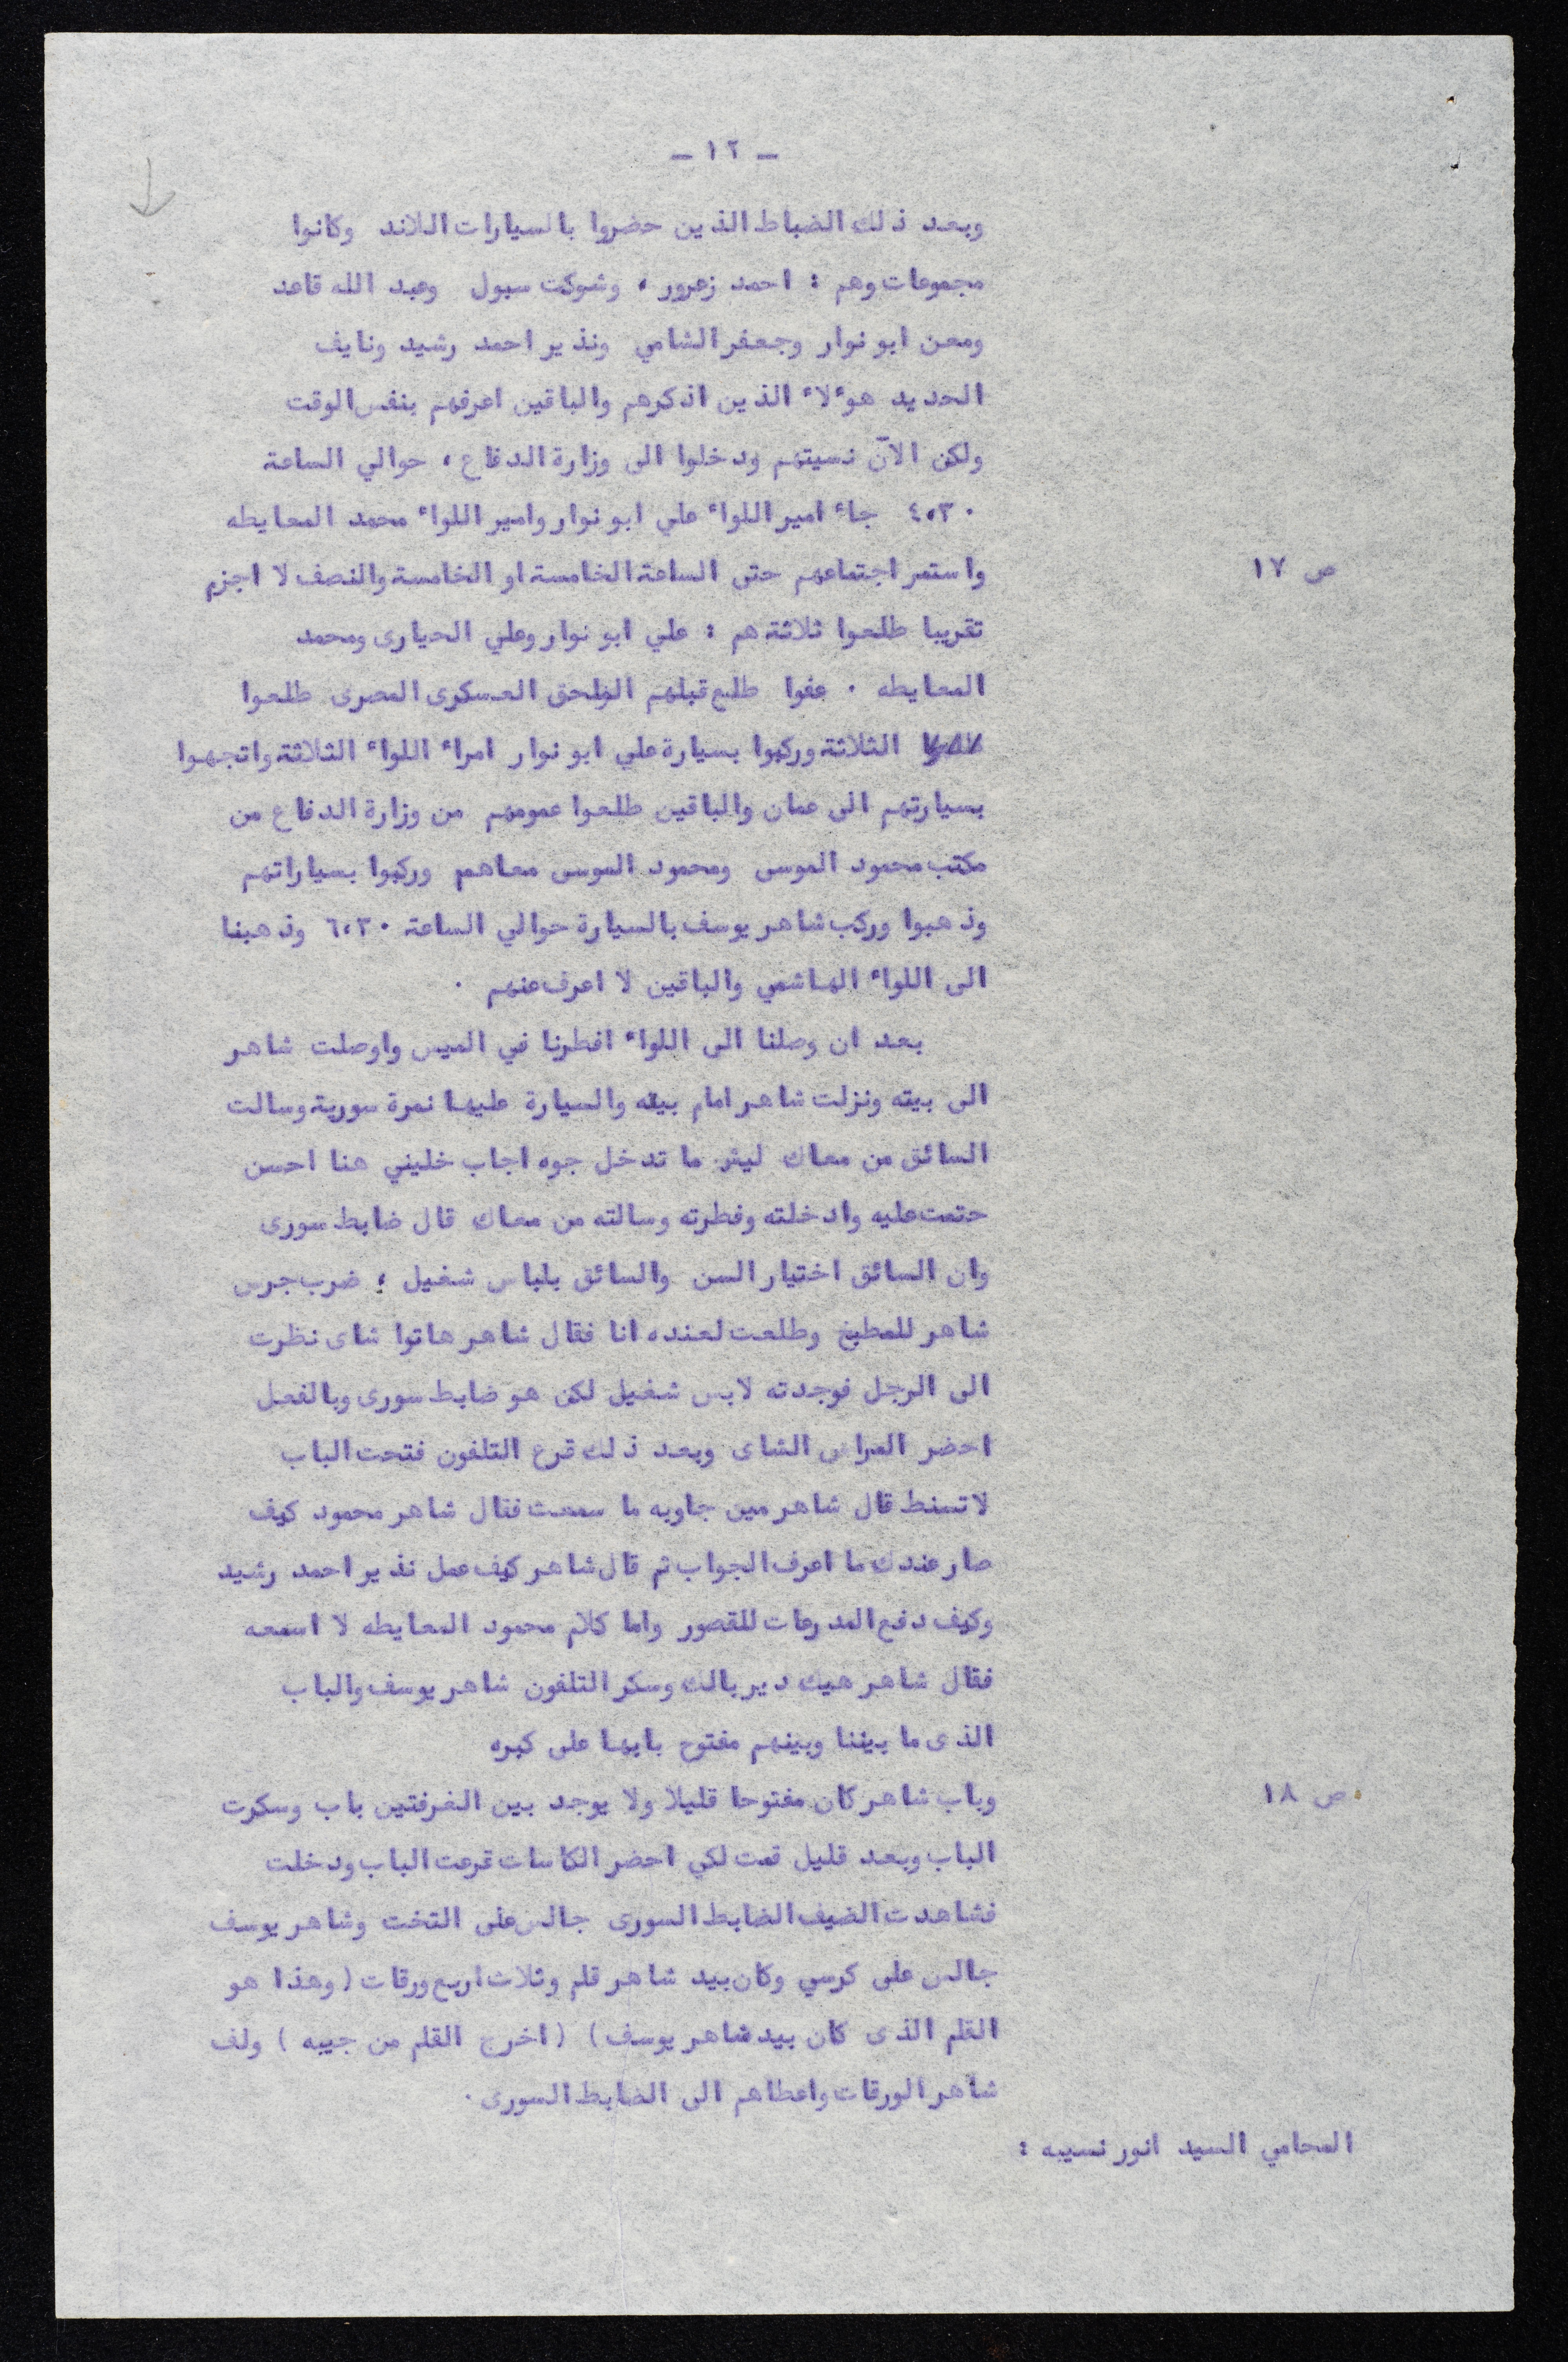 - ١٢ -
وبعد ذلك الضباط الذين حضروا بالسيارات اللاند وكانوا
مجموعات وهم : احمد زعرور ، وشوكت سبول وعبد الله قاعد
ومعن ابو نوار وجعفر الشامي ونذير احمد رشيد ونايف
الحديد هوءلاء الذين اذكرهم والباقين اعرفهم بنفس الوقت
ولكن الآن نسيتهم ودخلوا الى وزارة الدفاع ، حوالي الساعة
٤،٣٠ جاء امير اللواء علي ابو نوار وامير اللواء محمد المعايطه
ص ١٧
واستمر اجتماعهم حتى الساعة الخامسة او الخامسة والنصف لا اجزم
تقريبا طلعوا ثلاثة هم : علي ابو نوار وعلي الحيارى ومحمد
المعايطه . عفوا طلع قبلهم الملحق العسكرى المصرى طلعوا
الثلاثة وركبوا بسيارة علي ابو نوار امراء اللواء الثلاثة واتجهوا
بسيارتهم الى عمان والباقين طلعوا عمومهم من وزارة الدفاع من
مكتب محمود الموسى ومحمود الموسى معاهم وركبوا بسياراتهم
وذهبوا وركب شاهر يوسف بالسيارة حوالي الساعة ٦،٣٠ وذهبنا
الى اللواء الهاشمي والباقين لا اعرف عنهم .
بعد ان وصلنا الى اللواء افطرنا في الميس واوصلت شاهر
الى بيته ونزلت شاهر امام بيته والسيارة عليها نمرة سورية وسالت
السائق من معاك ليش ما تدخل جوه اجاب خليني هنا احسن
حتمت عليه وادخلته وفطرته وسالته من معاك قال ضابط سورى
وان السائق اختيار السن والسائق بلباس شغيل ، ضرب جرس
شاهر للمطبخ وطلعت لعنده انا فقال شاهر هاتوا شاى نظرت
الى الرجل فوجدته لابس شغيل لكن هو ضابط سورى وبالفعل
احضر المراس الشاى وبعد ذلك قرع التلفون فتحت الباب
لاتسنط قال شاهر مين جاوبه ما سمعت فقال شاهر محمود كيف
صار عندك ما اعرف الجواب ثم قال شاهر كيف عمل نذير احمد رشيد
وكيف دفع المدرعات للقصور واما كلام محمود المعايطه لا اسمعه
فقال شاهر هيك دير بالك وسكر التلفون شاهر يوسف والباب
الذى ما بيننا وبينهم مفتوح بابها على كبره
ص ١٨
وباب شاهر كان مفتوحا قليلا ولا يوجد بين الغرفتين باب وسكرت
الباب وبعد قليل قمت لكي احضر الكاسات قرعت الباب ودخلت
فشاهدت الضيف الضابط السورى جالس على التخت وشاهر يوسف
جالس على كرسي وكان بيد شاهر قلم وثلاث اربع ورقات ( وهذا هو
القلم الذى كان بيد شاهر يوسف ) ( اخرج القلم من جيبه ) ولف
شاهر الورقات واعطاهم الى الضابط السورى .
المحامي السيد انور نسيبه :